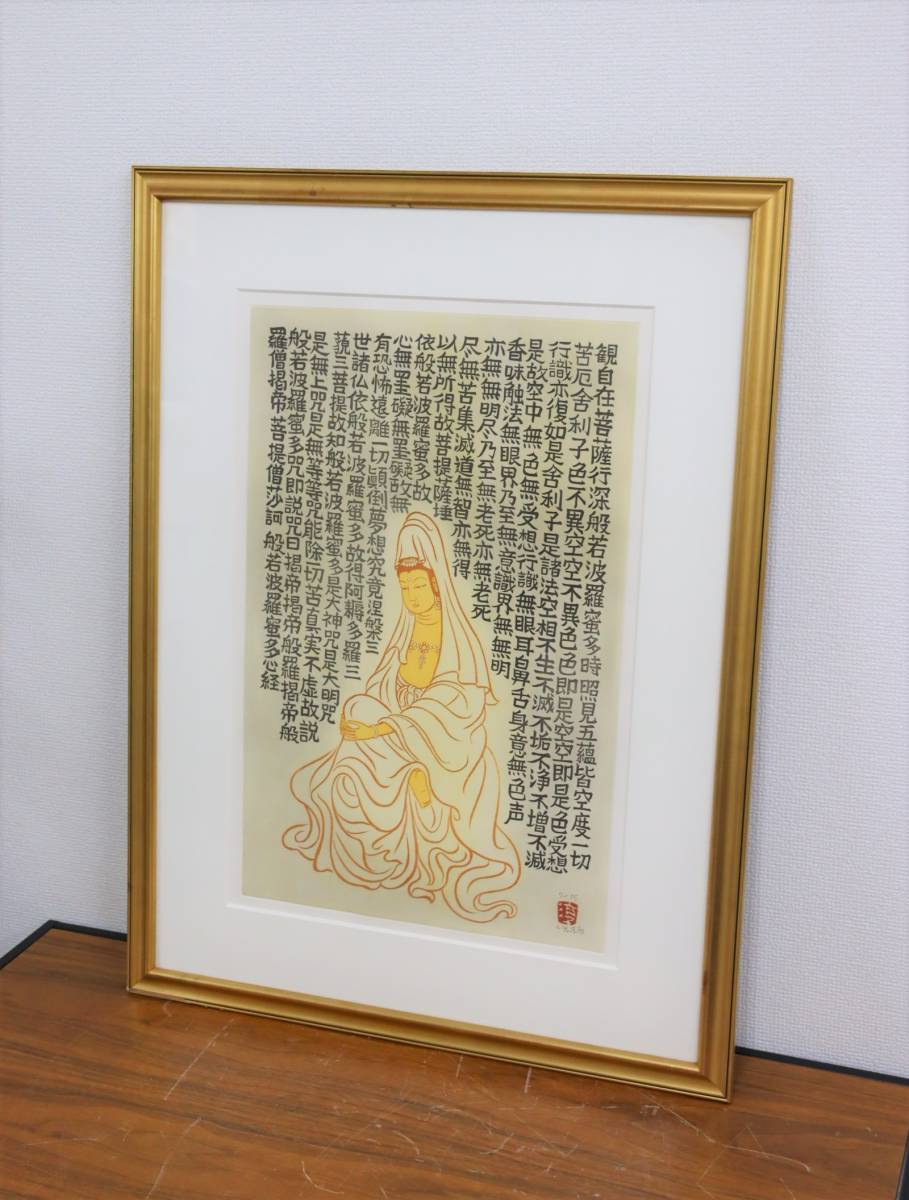 観自在菩薩行深般若波羅蜜多時照見五蘊皆空度一切
苦厄舎利子色不異空空不異色色即是空空即是色受想
行識亦復如是舎利子是諸法空相不生不滅不垢不浄不増不減
是故空中無色無受想行識無眼耳鼻舌身意無色声
香味触法無眼界乃至無意識界無無明
亦無無明尽乃至無老死亦無老死
尽無苦集滅道無智亦無得
以無所得故菩提薩埵
依般若波羅蜜多故
心無罣礙無罣礙故無
有恐怖遠離一切顛倒夢想究竟涅槃三
世諸仏依般若波羅蜜多故得阿耨多羅三
藐三菩提故知般若波羅蜜多是大神咒是大明咒
是無上咒是無等等咒能除一切苦真実不虚故説
般若波羅蜜多咒即説咒曰掲帝掲帝般羅掲帝般
羅僧掲帝菩提僧莎訶 般若波羅蜜多心経